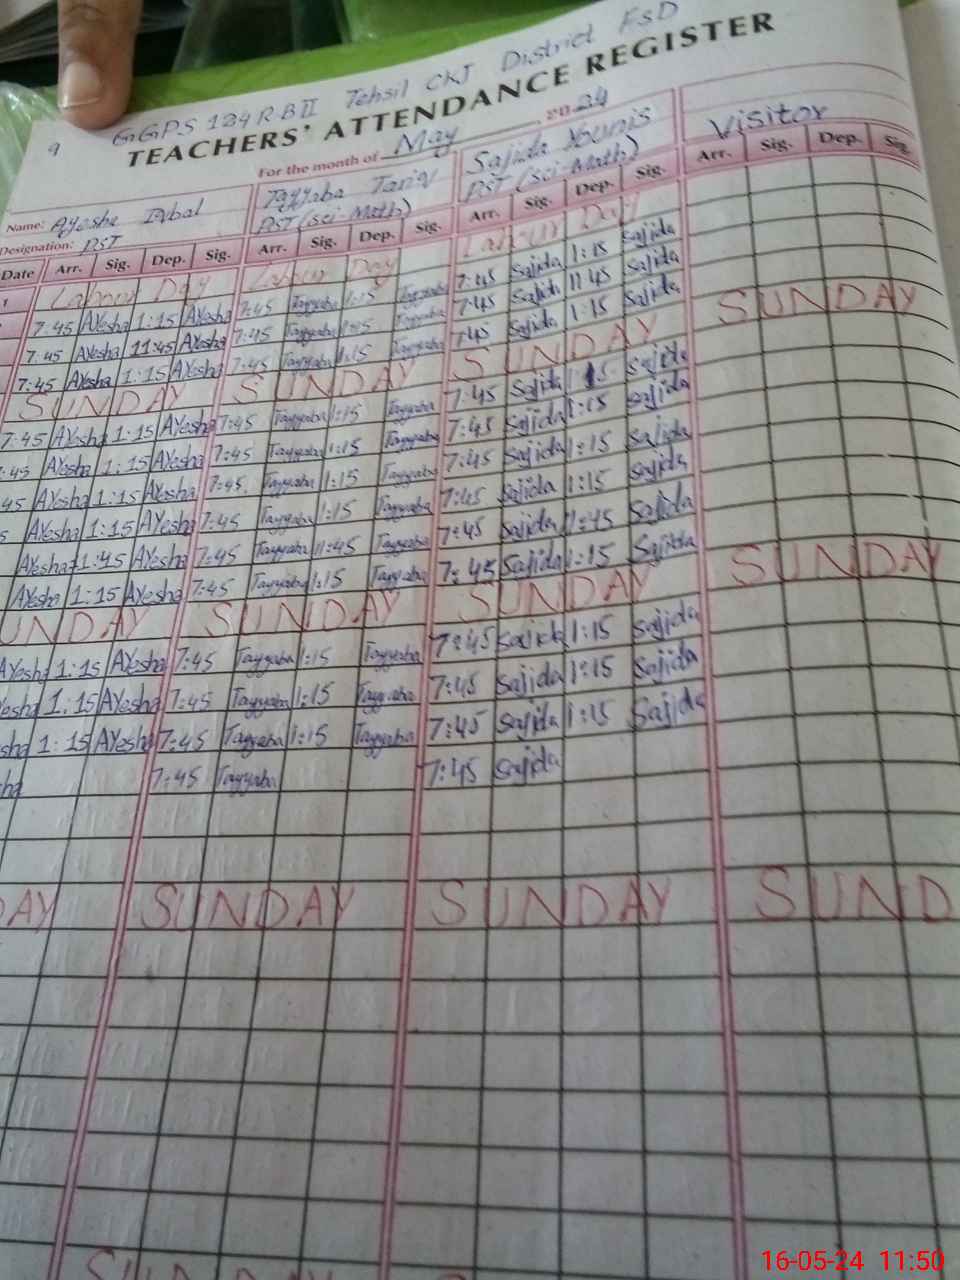 GGPS 124 R.B II Tehsil CKJ District FSD
9 TEACHERS' ATTENDANCE REGISTER
For the month of May 2024
Name: Ayesha Iqbal Tayyaba Tariq Sajida Younis Visitor
Designation: PST PST (sci-Math) PST (sci-Math)
Date Arr. Sig. Dep. Sig. Arr. Sig. Dep. Sig. Arr. Sig. Dep. Sig. Arr. Sig. Dep. Sig.
1 Labour Day Labour Day Labour Day
7:45 AYesha 1:15 AYesha 7:45 Tayyaba 1:15 Tayyaba 7:45 Sajida 1:15 Sajida
7:45 AYesha 11:45 AYesha 7:45 Tayyaba Tayyaba 7:45 Sajida 11:45 Sajida
7:45 AYesha 1:15 AYesha 7:45 Tayyaba 1:15 Tayyaba 7:45 Sajida 1:15 Sajida
SUNDAY SUNDAY SUNDAY SUNDAY
7:45 AYesha 1:15 AYesha 7:45 Tayyaba 1:15 Tayyaba 7:45 Sajida 1:15 Sajida
:45 AYesha 1:15 AYesha 7:45 Tayyaba 1:15 Tayyaba 7:45 Sajida 1:15 Sajida
45 AYesha 1:15 AYesha 7:45 Tayyaba 1:15 Tayyaba 7:45 Sajida 1:15 Sajida
5 AYesha 1:15 AYesha 7:45 Tayyaba 1:15 Tayyaba 7:45 Sajida 1:15 Sajida
AYesha 11:45 AYesha 7:45 Tayyaba 11:45 Tayyaba 7:45 Sajida 11:45 Sajida
AYesha 1:15 AYesha 7:45 Tayyaba 1:15 Tayyaba 7:45 Sajida 1:15 Sajida
UNDAY SUNDAY SUNDAY SUNDAY
AYesha 1:15 AYesha 7:45 Tayyaba 1:15 Tayyaba 7:45 Sajida 1:15 Sajida
yesha 1:15 AYesha 7:45 Tayyaba 1:15 Tayyaba 7:45 Sajida 1:15 Sajida
sha 1:15 AYesha 7:45 Tayyaba 1:15 Tayyaba 7:45 Sajida 1:15 Sajida
ha 7:45 Tayyaba 7:45 Sajida
DAY SUNDAY SUNDAY SUND
SUNDAY
16-05-24 11:50